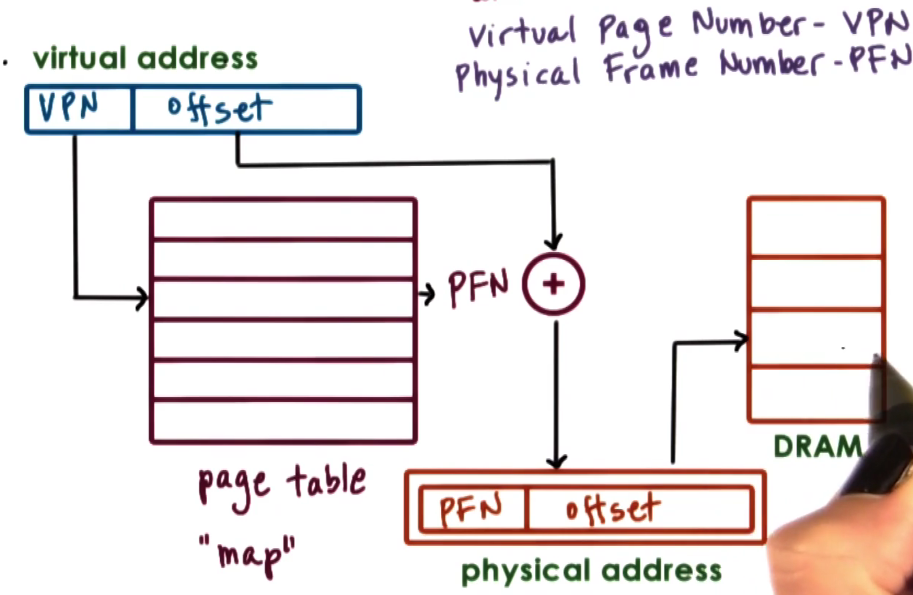 Virtual Page Number - VPN
Physical Frame Number - PFN
. virtual address
VPN offset
PFN +
DRAM
page table
"map"
PFN offset
physical address